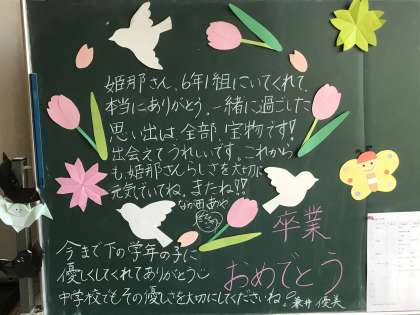 姫那さん、6年1組にいてくれて、
本当にありがとう。一緒に過ごした
思い出は全部、宝物です!!
出会えてうれしいです。これから
も姫那さんらしさを大切に
元気でいてね。またね!!
卒業
おめでとう
今まで下の学年の子に
優しくしてくれてありがとう
中学校でもその優しさを大切にしてくださいね。